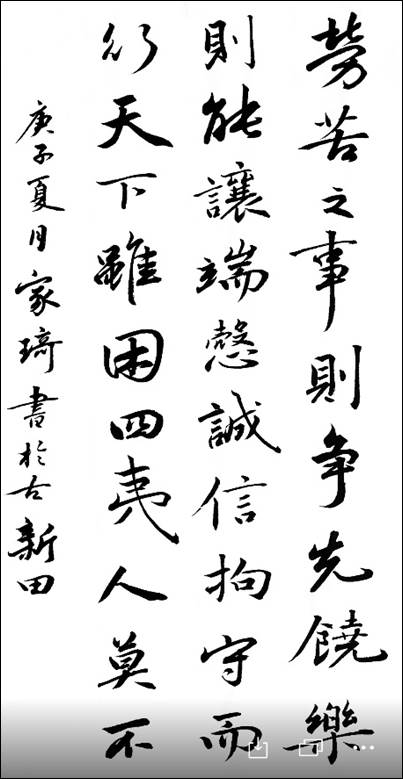 勞苦之事則争先饒樂
則能讓端慤誠信拘守而
行天下雖困四夷人莫不
庚子夏月家琦書於古新田